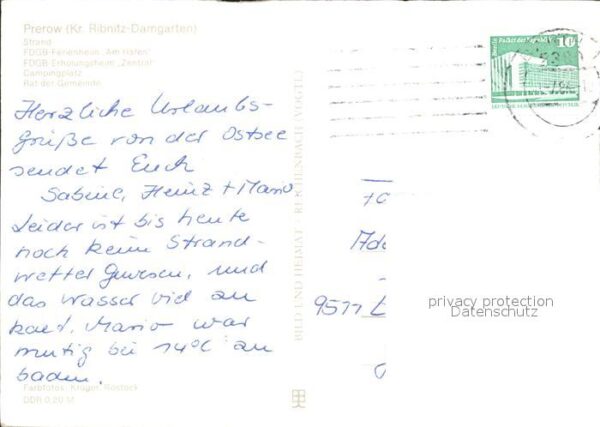 Prerow (Kr. Ribnitz-Damgarten)
Strand
FDGB-Ferienheim "Am Hafen"
FDGB-Erholungsheim "Zentral"
Campingplatz
Rat der Gemeinde
Herzliche Urlaubs-
grüße von der Ostsee
sendet Euch
Sabine, Heinz + Mario
Leider ist bis heute
noch kein Strand-
wetter gewesen, und
das Wasser viel zu
kalt. Mario war
mutig bei 14°C zu
baden.
Farbfotos: Krüger, Rostock
DDR 0,20 M
BILD UND HEIMAT REICHENBACH (VOGTL)
10
9511
privacy protection
Datenschutz